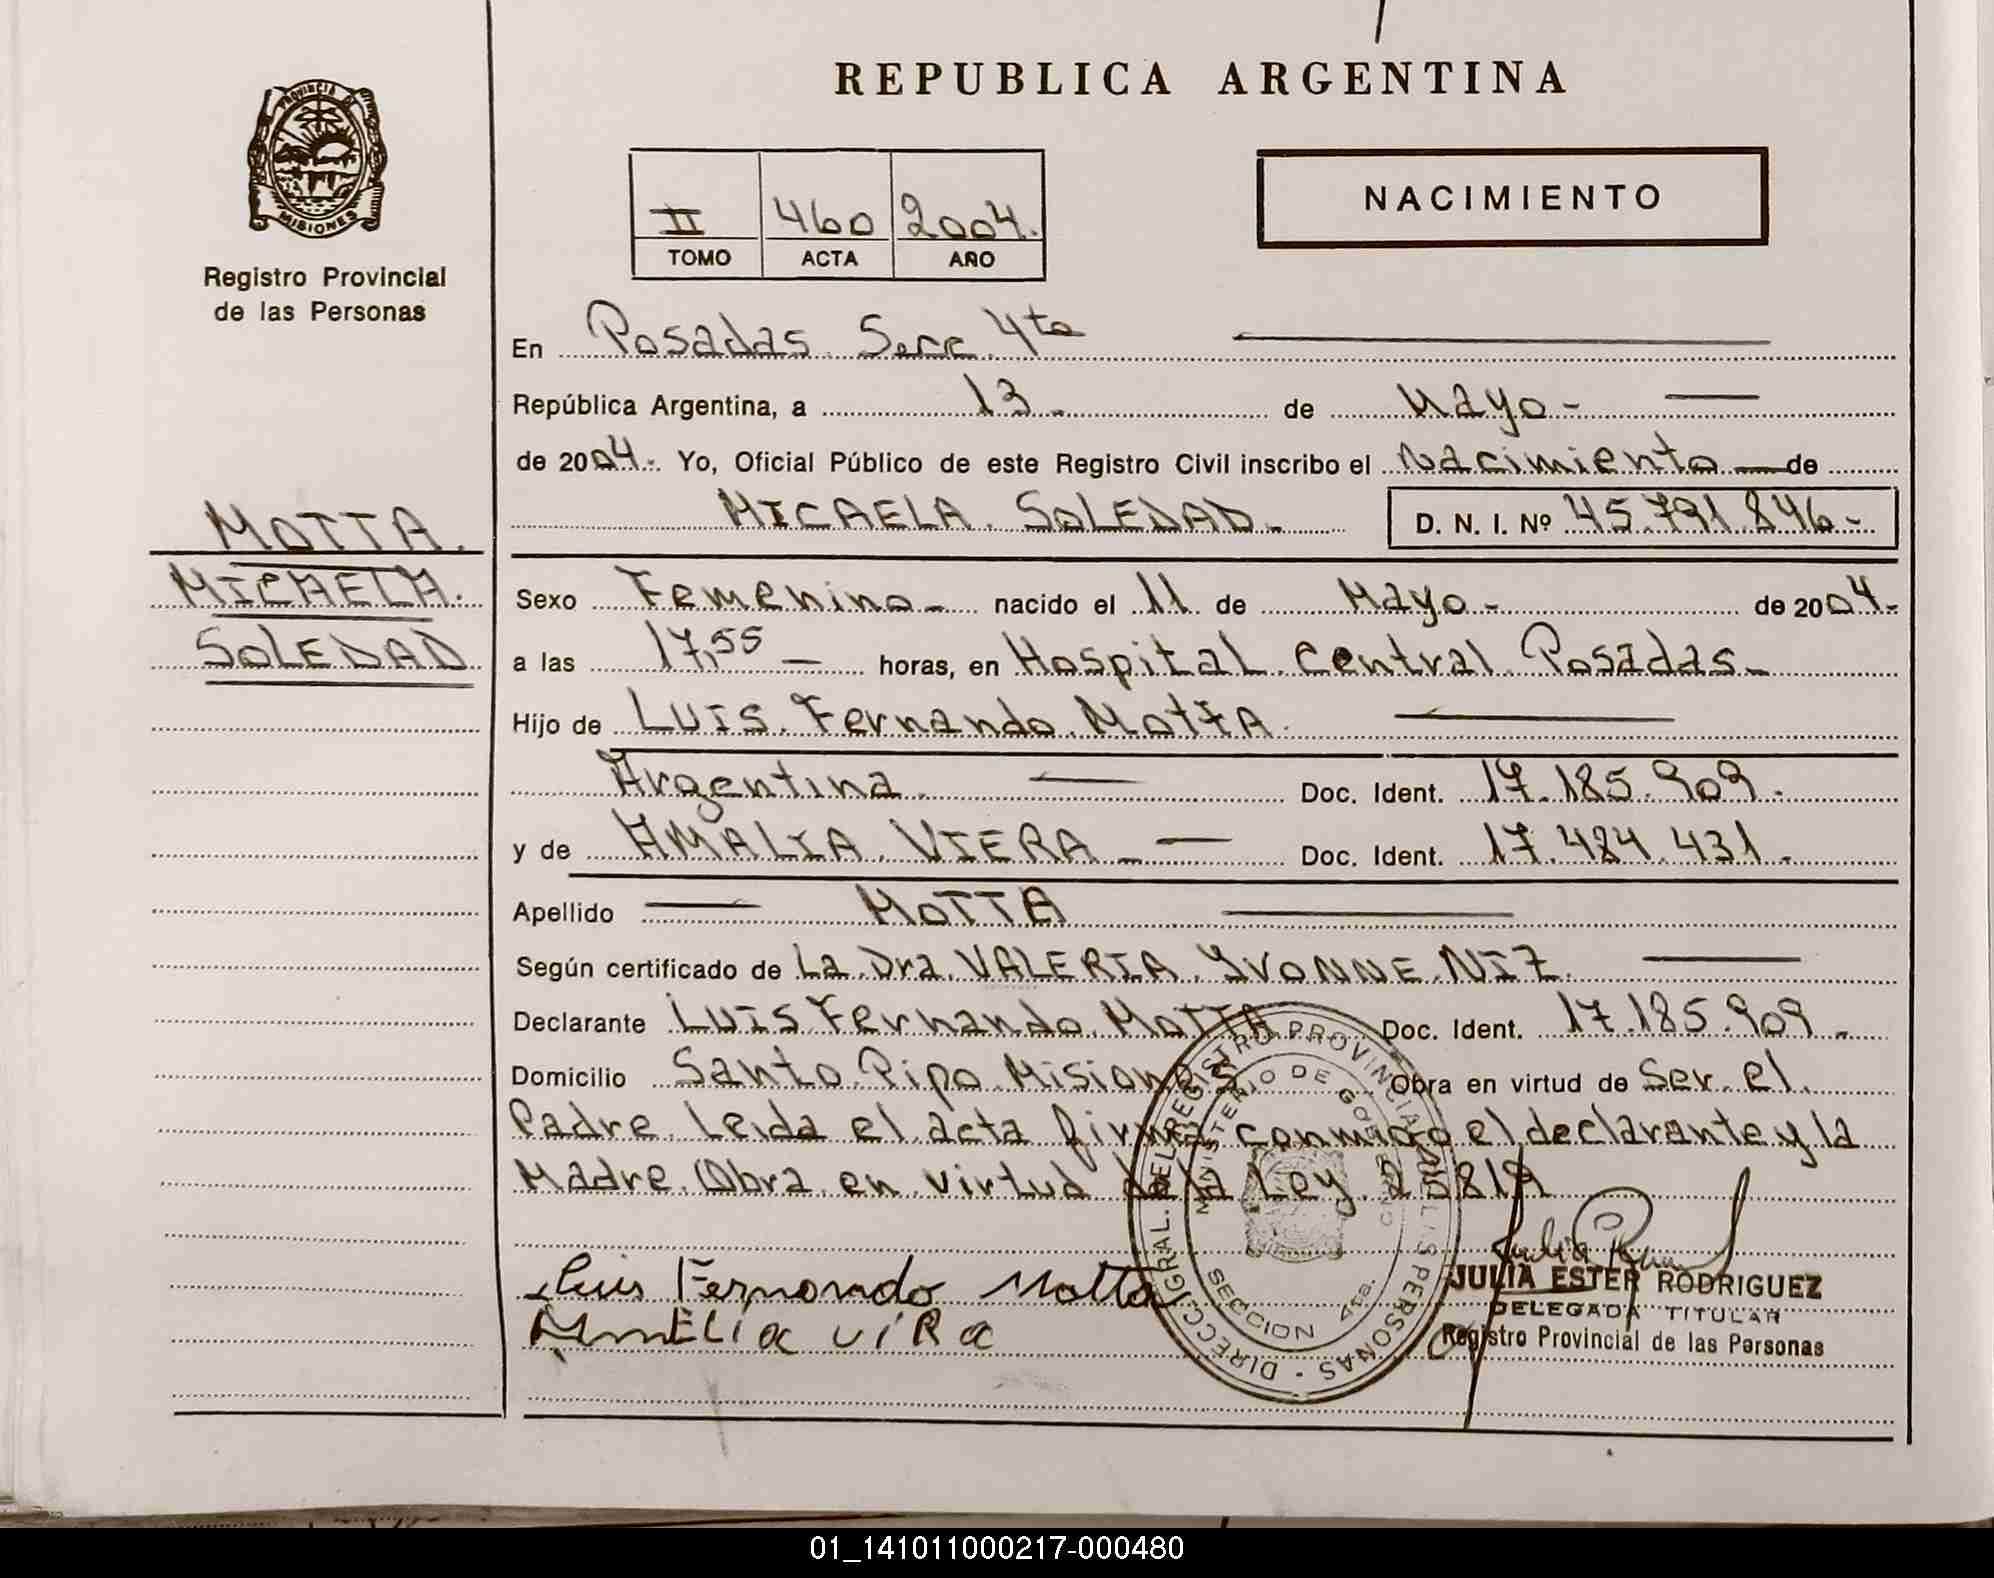 REPUBLICA ARGENTINA
PROVINCIA DE
MISIONES
Registro Provincial
de las Personas
II 460 2004.
TOMO ACTA AÑO
NACIMIENTO
En Posadas Secc. 4ta
República Argentina, a 13 - de Mayo -
de 2004.- Yo, Oficial Público de este Registro Civil inscribo el Nacimiento de
MICAELA SOLEDAD - D. N. I. Nº 45.791.846-
MOTTA.
MICAELA.
SOLEDAD
Sexo Femenino - nacido el 11 de Mayo - de 2004-
a las 17,55 — horas, en Hospital Central Posadas-
Hijo de LUIS Fernando MottA.
Argentina. — Doc. Ident. 17.185.909.
y de AMALIA VIERA - — Doc. Ident. 17.484.431.
Apellido — MOTTA —
Según certificado de La Dra. VALERIA YVONNE NIZ. —
Declarante LUIS Fernando MOTTA Doc. Ident. 17.185.909.-
Domicilio Santo Pipo Misiones Obra en virtud de Ser el
Padre. Leida el acta firma conmigo el declarante y la
Madre. Obra en virtud de la Ley 25819
Luis Fernando Motta
AmELia viRa
DIRECC. GRAL. DEL REGISTRO PROVINCIAL DE LAS PERSONAS
MINISTERIO DE GOBIERNO
SECCION 4ta.
JULIA ESTER RODRIGUEZ
DELEGADA TITULAR
Registro Provincial de las Personas
01_141011000217-000480